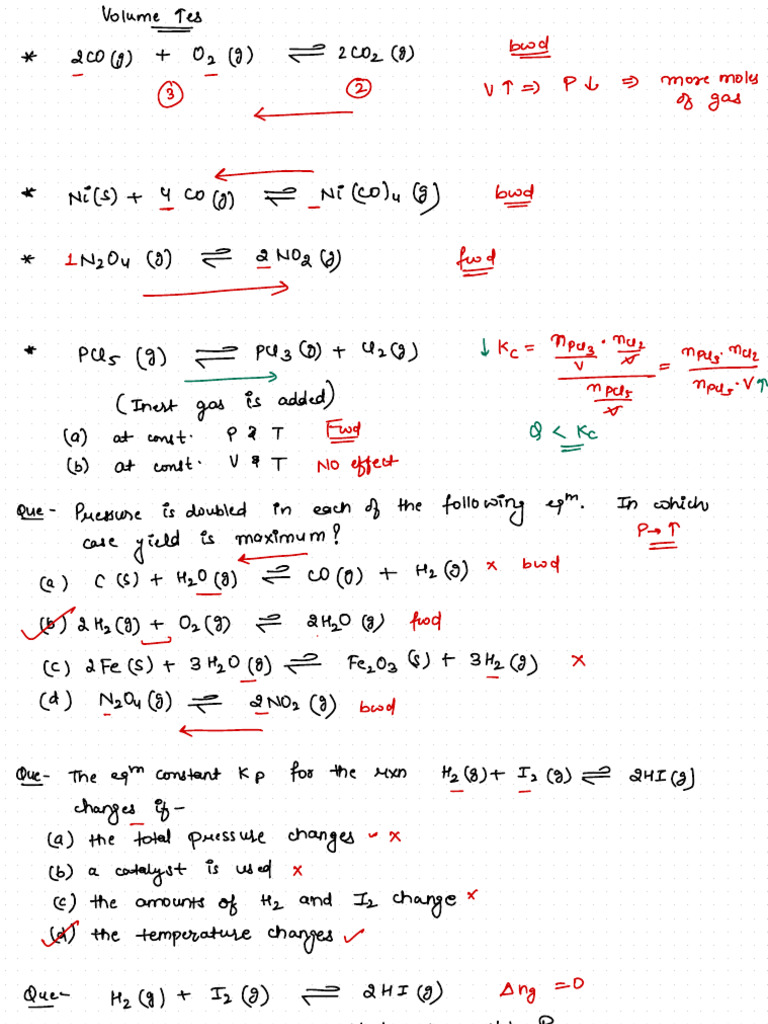 Volume ↑es
* 2CO(g) + O2(g) ⇌ 2CO2(g) bwd
③ ② V↑ ⇒ P↓ ⇒ more moles of gas
* Ni(s) + 4 CO(g) ⇌ Ni(CO)4(g) bwd
* 1N2O4 (g) ⇌ 2NO2(g) fwd
* PCl5 (g) ⇌ PCl3(g) + Cl2(g) ↓ KC = nPCl3/V · nCl2/V / nPCl5/V = nPCl3 · nCl2 / nPCl5 · V↑
(Inert gas is added)
(a) at const. P & T Fwd Q < KC
(b) at const. V & T NO effect
Que - Pressure is doubled in each of the following eqm. In which
case yield is maximum? P→↑
(a) C(s) + H2O(g) ⇌ CO(g) + H2(g) × bwd
(b) 2H2(g) + O2(g) ⇌ 2H2O(g) fwd
(c) 2Fe(s) + 3H2O(g) ⇌ Fe2O3(s) + 3H2(g) ×
(d) N2O4(g) ⇌ 2NO2(g) bwd
Que - The eqm constant Kp for the rxn H2(g) + I2(g) ⇌ 2HI(g)
changes if -
(a) the total pressure changes ×
(b) a catalyst is used ×
(c) the amounts of H2 and I2 change ×
(d) the temperature changes ✓
Que - H2(g) + I2(g) ⇌ 2HI(g) Δng = 0